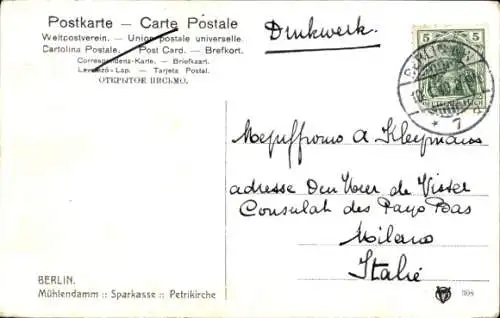 Postkarte — Carte Postale
Weltpostverein. — Union postale universelle.
Cartolina Postale. Post Card. — Brefkort.
Correspondenz-Karte. — Briefkaart.
Levelező-Lap. — Tarjeta Postal.
ОТКРЫТОЕ ПИСЬМО.
Drukwerk.
5 5
BERLIN
7
a Kleymans
adresse Den Heer de Visser
Consulat des Pays Bas
Milano
Italië
BERLIN.
Mühlendamm :: Sparkasse :: Petrikirche